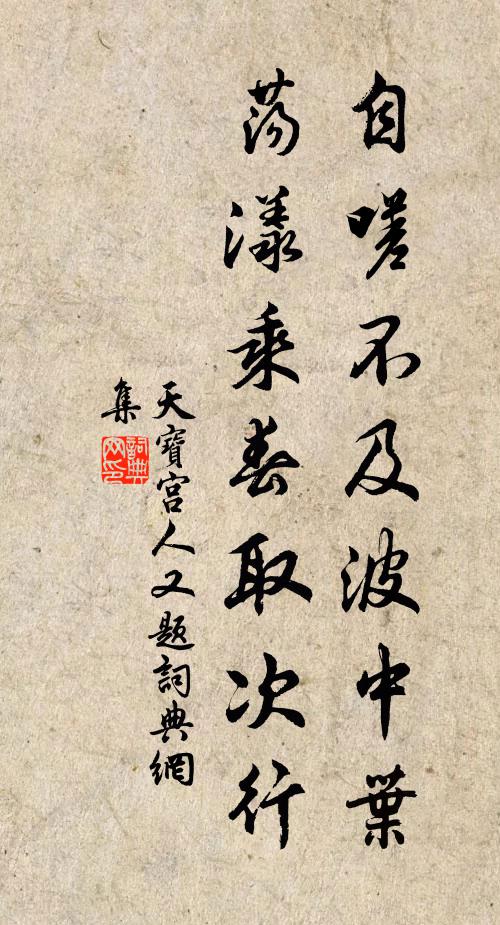 自嗟不及波中葉
蕩漾乘春取次行
天寶宮人又題詞典網
集
詞典
網印